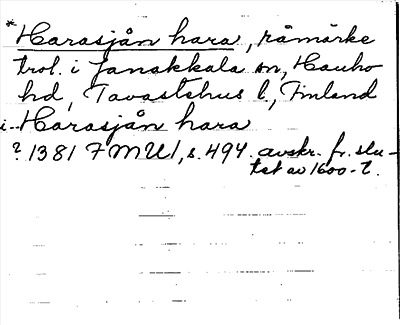 *Harasjån hara, råmärke
trol. i Janakkala sn, Hauho
hd, Tavastehus l, Finland
i Harasjån hara
? 1381 FMU1, s. 494. avskr. fr. slu-
tet av 1600-t.